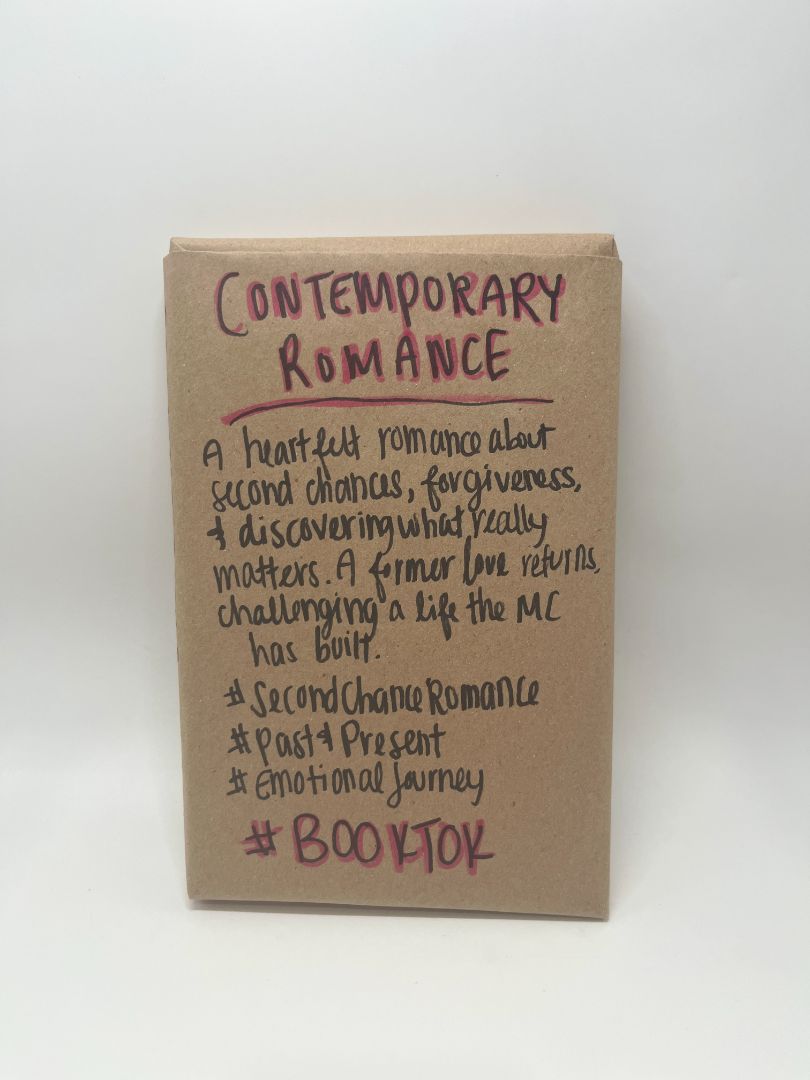 CONTEMPORARY
ROMANCE
A heartfelt romance about
second chances, forgiveness,
& discovering what really
matters. A former love returns,
challenging a life the MC
has built.
#SecondChanceRomance
#Past&Present
#Emotional Journey
#BOOKTOK